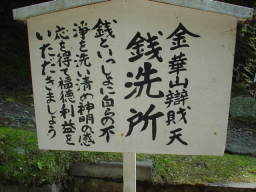 金華山辯財天
銭洗所
銭といっしょに自らの不
浄を洗い清め神明の感
応を得て福徳利益を
いただきましょう